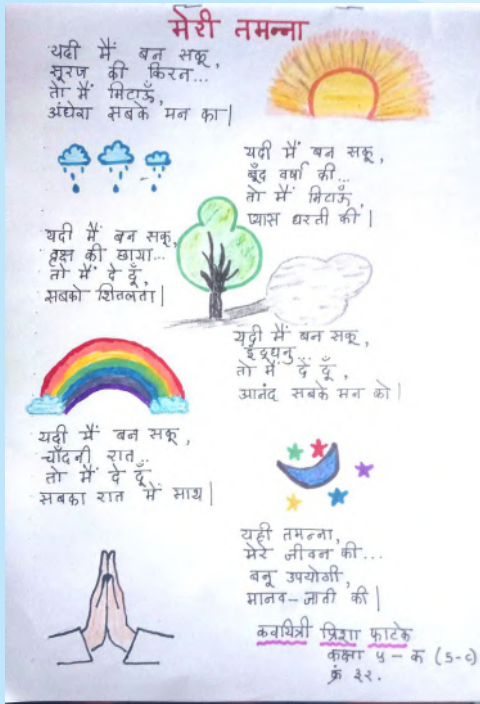 मेरी तमन्ना
यदी मैं बन सकू,
सूरज की किरन...
तो मैं मिटाऊँ,
अंधेरा सबके मन का|
यदी मैं बन सकू,
बूँद वर्षा की...
तो मैं मिटाऊँ,
प्यास धरती की|
यदी मैं बन सकू,
वृक्ष की छाया...
तो मैं दे दूँ,
सबको शितलता|
यदी मैं बन सकू,
इंद्रधनु...
तो मैं दे दूँ,
आनंद सबके मन को|
यदी मैं बन सकू,
चाँदनी रात..
तो मैं दे दूँ
सबका रात में साथ|
यही तमन्ना,
मेरे जीवन की...
बनू उपयोगी,
मानव-जाती की|
कवयित्री प्रिशा फाटके
कक्षा ५ - क (5-c)
क्रं ३२.